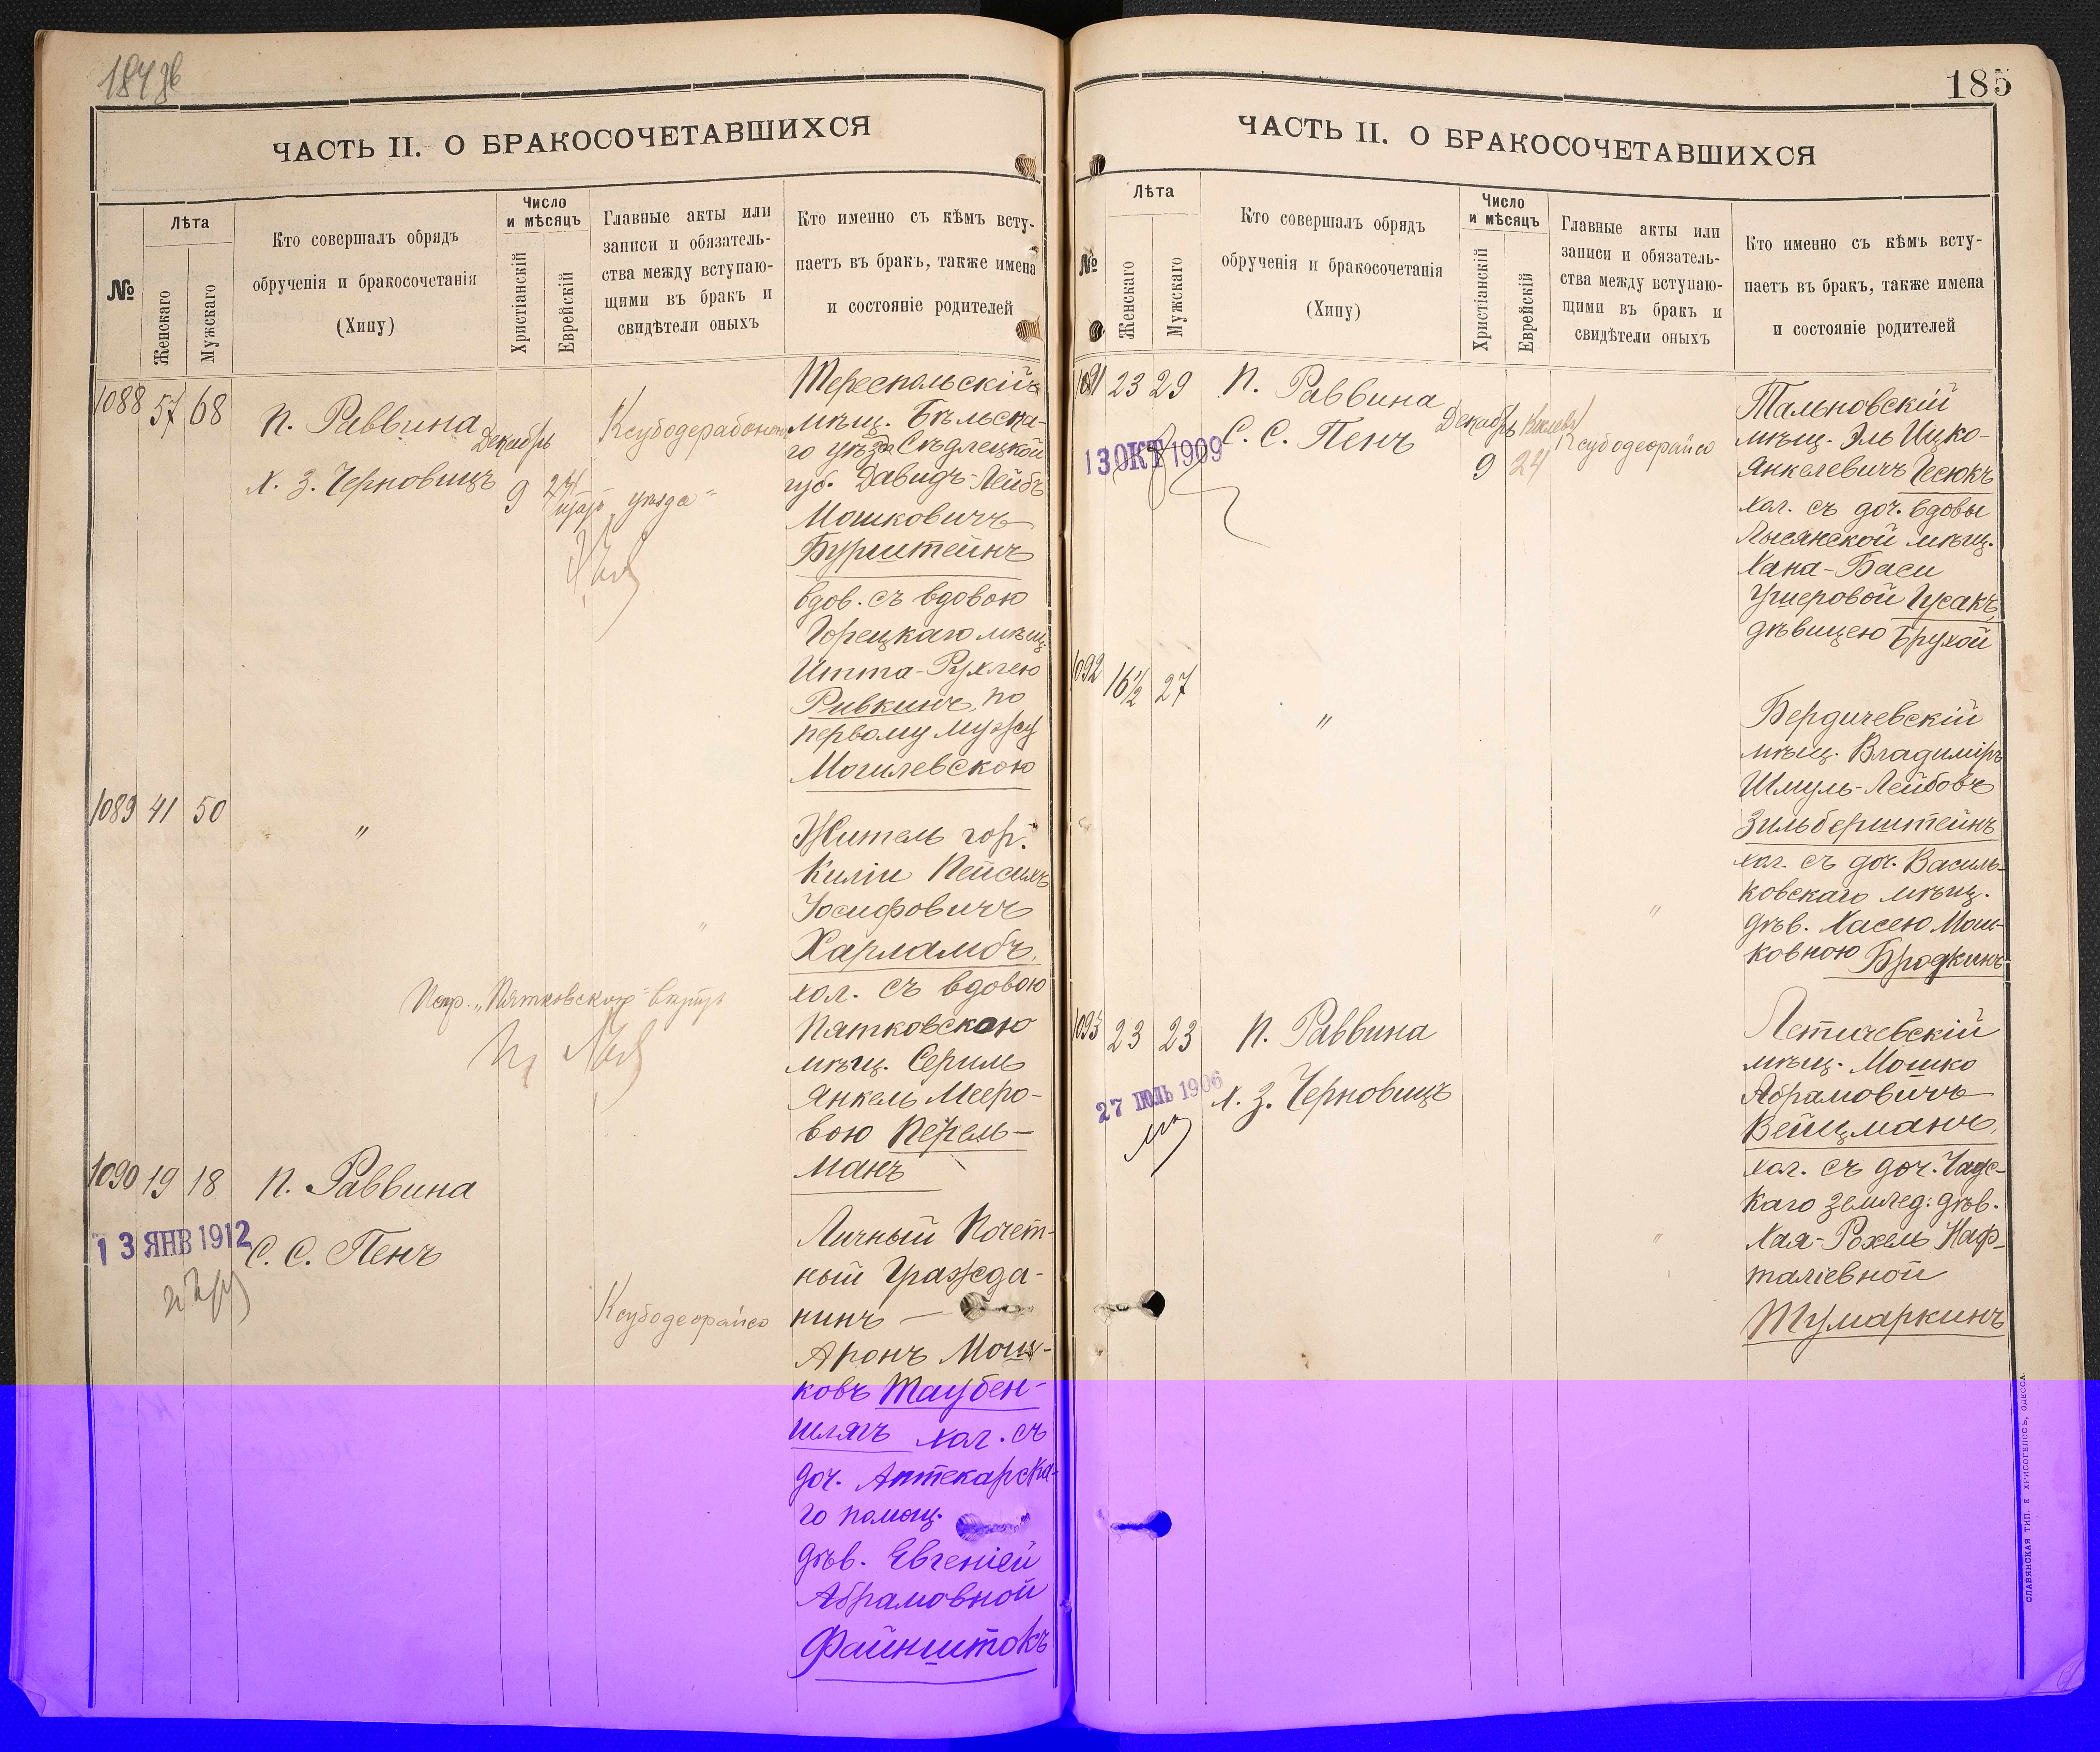 185
ЧАСТЬ II. О БРАКОСОЧЕТАВШИХСЯ
№
Лѣта
Женскаго
Мужскаго
Кто совершалъ обрядъ
обрученія и бракосочетанія
(Хипу)
Число
и мѣсяцъ
Христіанскій
Еврейскій
Главные акты или
записи и обязатель-
ства между вступаю-
щими въ бракъ и
свидѣтели оныхъ
Кто именно съ кѣмъ всту-
паетъ въ бракъ, также имена
и состояніе родителей
1088 57 68
П. Раввина
Х. З. Черновицъ
Декабрь
9 24
Тереспольскій
мѣщ. Бѣльска-
го уѣзда Сѣдлецкой
губ. Давидъ-Лейбъ
Мошковичъ
Бурштейнъ
вдов. съ вдовою
Горецкаго мѣщ.
Итта-Рухлею
Ривкинъ, по
первому мужу
Могилевскою
1089 41 50
"
"
Житель гор.
Киліи Пейсахъ
Іосифовичъ
Харламбъ,
хол. съ вдовою
Пятковскою
мѣщ. Сериль
Янкель Мееро-
вою Перель-
манъ
1090 19 18
П. Раввина
С. С. Пенъ
13 ЯНВ 1912
Ксубодеорайсо
Личный Почет-
ный Гражда-
нинъ —
Аронъ Мош-
ковъ Таубен-
шлягъ хол. съ
доч. Аптекарска-
го помощ.
дѣв. Евгеніей
Абрамовной
Файнштокъ
ЧАСТЬ II. О БРАКОСОЧЕТАВШИХСЯ
№
Лѣта
Женскаго
Мужскаго
Кто совершалъ обрядъ
обрученія и бракосочетанія
(Хипу)
Число
и мѣсяцъ
Христіанскій
Еврейскій
Главные акты или
записи и обязатель-
ства между вступаю-
щими въ бракъ и
свидѣтели оныхъ
Кто именно съ кѣмъ всту-
паетъ въ бракъ, также имена
и состояніе родителей
1091 23 29
П. Раввина
С. С. Пенъ
13 ОКТ 1909
Декабрь
9 24
Ксубодеорайсо
Тальновскій
мѣщ. Эль Ицко-
Янкелевичъ
хол. съ доч. вдовы
Лысянской мѣщ.
Хана-Баси
Ушеровой Гусакъ,
дѣвицею Брухой
1092 16½ 27
"
"
Бердичевскій
мѣщ. Владиміръ
Шмуль-Лейбовъ
Зильберштейнъ
хол. съ доч. Василь-
ковскаго мѣщ.
дѣв. Хасею Мош-
ковною Бродкинъ
1093 23 23
П. Раввина
Х. З. Черновицъ
27 ІЮЛЬ 1906
"
Летичевскій
мѣщ. Мошко
Абрамовичъ
Вейцманъ,
хол. съ доч.
каго землед: дѣв.
Хая-Рохель Наф-
таліевной
Тумаркинъ
СЛАВЯНСКАЯ ТИП. Е. ХРИСОГЕЛОСЪ, ОДЕССА.